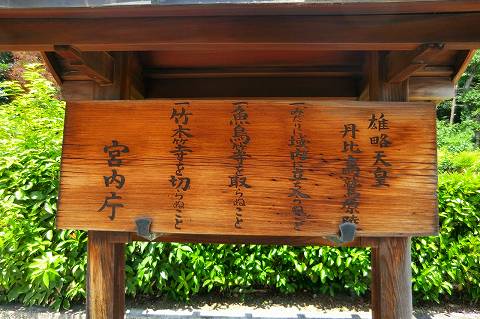 雄略天皇
丹比高鷲原陵
一みだりに域内に立ち入らぬこと
一魚鳥等を取らぬこと
一竹木等を切らぬこと
宮内庁